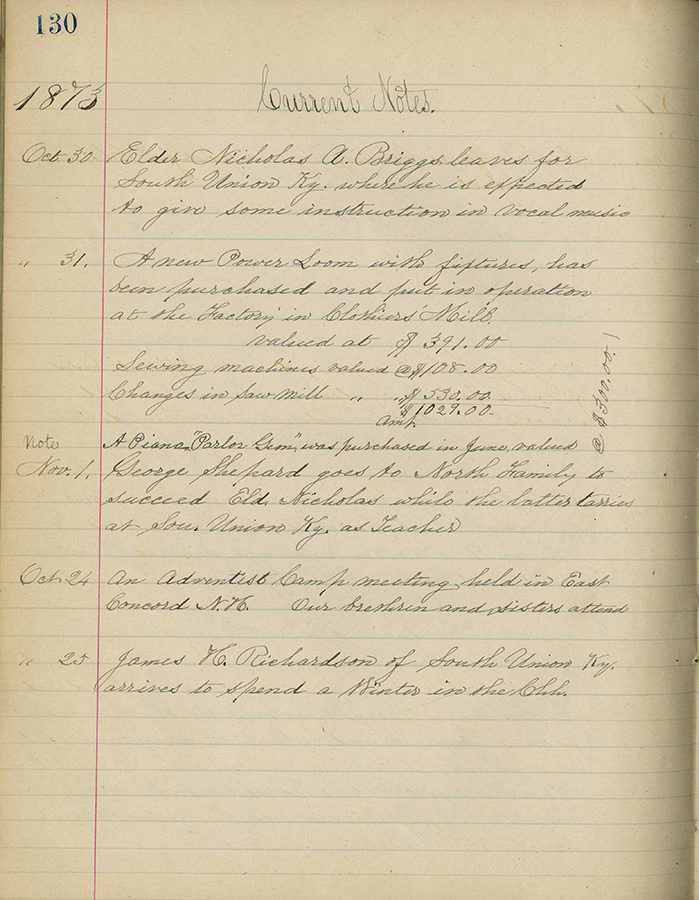 130
1873 Current Notes.
Oct 30 Elder Nicholas A. Briggs leaves for
South Union Ky. where he is expected
to give some instruction in vocal music
" 31. A new Power Loom with fixtures, has
been purchased and put in operation
at the Factory in Clothiers Mill.
valued at $391.00
Sewing machines valued @ $108.00
Changes in Saw Mill " " $530.00
Amt $1029.00
Note A Piano "Parlor Gem", was purchased in June, valued
@ $300.00!
Nov. 1. George Shepard goes to North Family to
succeed Eld. Nicholas while the latter tarries
at Sou. Union Ky. as Teacher
Oct 24 An Adventist Camp meeting held in East
Concord N.H. Our brethrin and sisters attend
" 25 James H. Richardson of South Union Ky.
arrives to spend a Winter in the Chh.